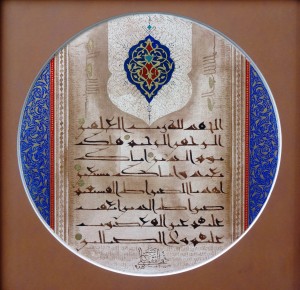 الحمد لله رب العلمين
الرحمن الرحيم ملك
يوم الدين اياك
نعبد و اياك نستعين
اهدنا الصراط المستقيم
صراط الذين انعمت
عليهم غير المغضوب
عليهم ولا الضالين